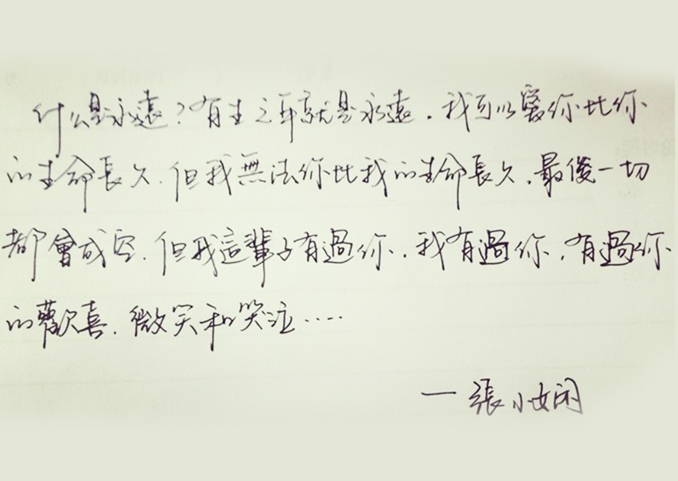 什么是永遠？有生之年就是永遠．我可以愛你比你
的生命長久．但我無法你比我的生命長久．最後一切
都會成空．但我這輩子有過你．我有過你．有過你
的歡喜．微笑和笑泣……
—張小娴